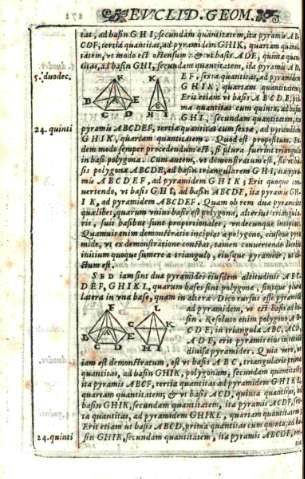 EVCLID. GEOM.
tas, ad basin GHI, secundam quantitatem, ita pyramis AB
CDF, tertia quantitas, ad pyramidem GHIK, quartam quanti
tatem, vt modo est ostensum
tas, ad basin GHI, secundam quantitatem, ita pyramis AD
5. duodec.
EF, sexta quantitas, ad pyramidem
GHIK, quartam quantitatem:
Erit etiam vt basis ABCDE, pri
ma quantitas cum quinta, ad basin
GHI, secundam quantitatem, ita
24. quinti
pyramis ABCDEF, tertia quantitas cum sexta, ad pyramidem
GHIK, quartam quantitatem. Quod est propositum. Eo
dem modo semper procedendum est, si plura fuerint triangula
in basi polygona. Cum autem, vt demonstratum est, sit vt ba
sis polygona ABCDE, ad basin triangularem GHI, ita pyra
mis ABCDEF, ad pyramidem GHIK; Erit quoque con
uertendo, vt basis GHI, ad basin ABCDE, ita pyramis GH
IK, ad pyramidem ABCDEF. Quam ob rem duæ pyramides
qualibet, quarum vnius basis est polygona, alterius triangula
ris, suis basibus sunt proportionales, vt demum
Quamuis enim demonstratio incipiat a polygona, eiusque pyra
mide, vt ex demonstratione constat, tamen conuertendo
initium quoque sumere a triangulo, eiusque pyramide, vt di
ctum est.
SED iam sint duæ pyramides eiusdem altitudinis ABC
DEF, GHIKL, quarum bases sint polygonæ, sintque plura
latera in vna base, quam in altera. Dico rursus esse pyramidem
ad pyramidem, vt est basis ad ba
sin. Resoluto enim polygono ABC
DE, in triangula ABC, ACD,
ADE, erit pyramis eius in tres
diuisa pyramides. Quia vero, vt
iam est demonstratum, est vt basis ABC, triangularis prima
quantitas, ad basin GHIK, polygonam, secundam quantitatem,
ita pyramis ABCF, tertia quantitas ad pyramidem GHIKL,
quartam quantitatem; & vt basis ACD, quinta quantitas, ad
basin GHIK, secundam quantitatem, ita pyramis ACDF, sex
ta quantitas, ad pyramidem GHIKL, quartam quantitatem:
Erit etiam vt basis ABCD, prima quantitas cum quinta, ad ba
24. quinti
sin GHIK, secundam quantitatem, ita pyramis ABCDF, ter